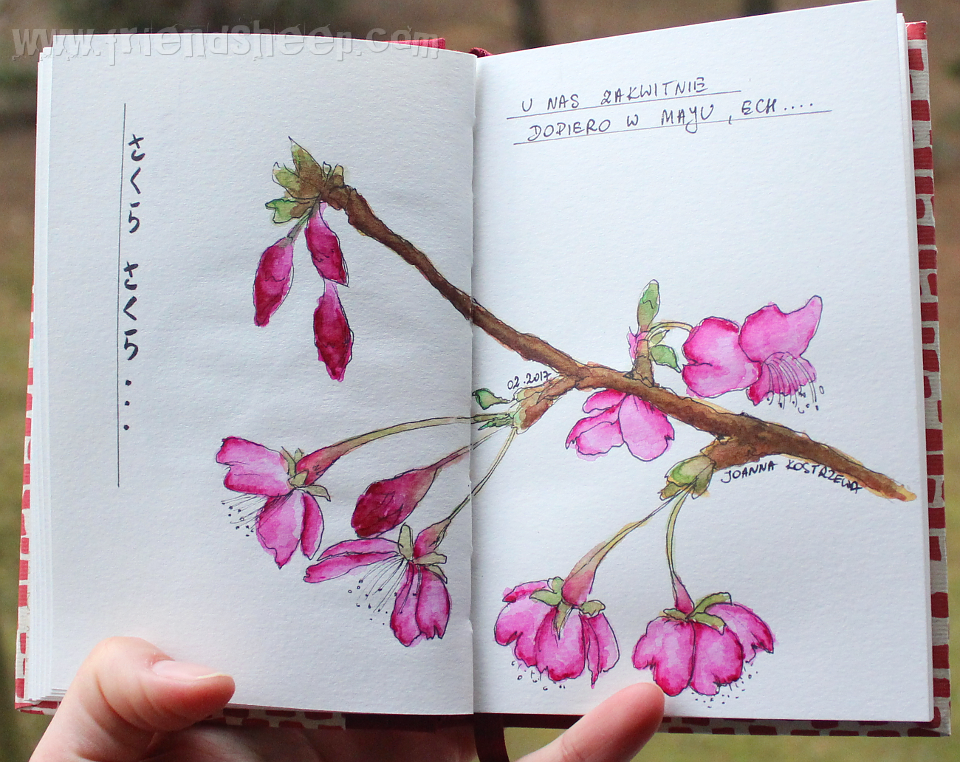 www.friendsheep.com
さくら さくら...
U NAS ZAKWITNIE
DOPIERO W MAYU, ECH....
02.2017
JOANNA KOSTRZEWA